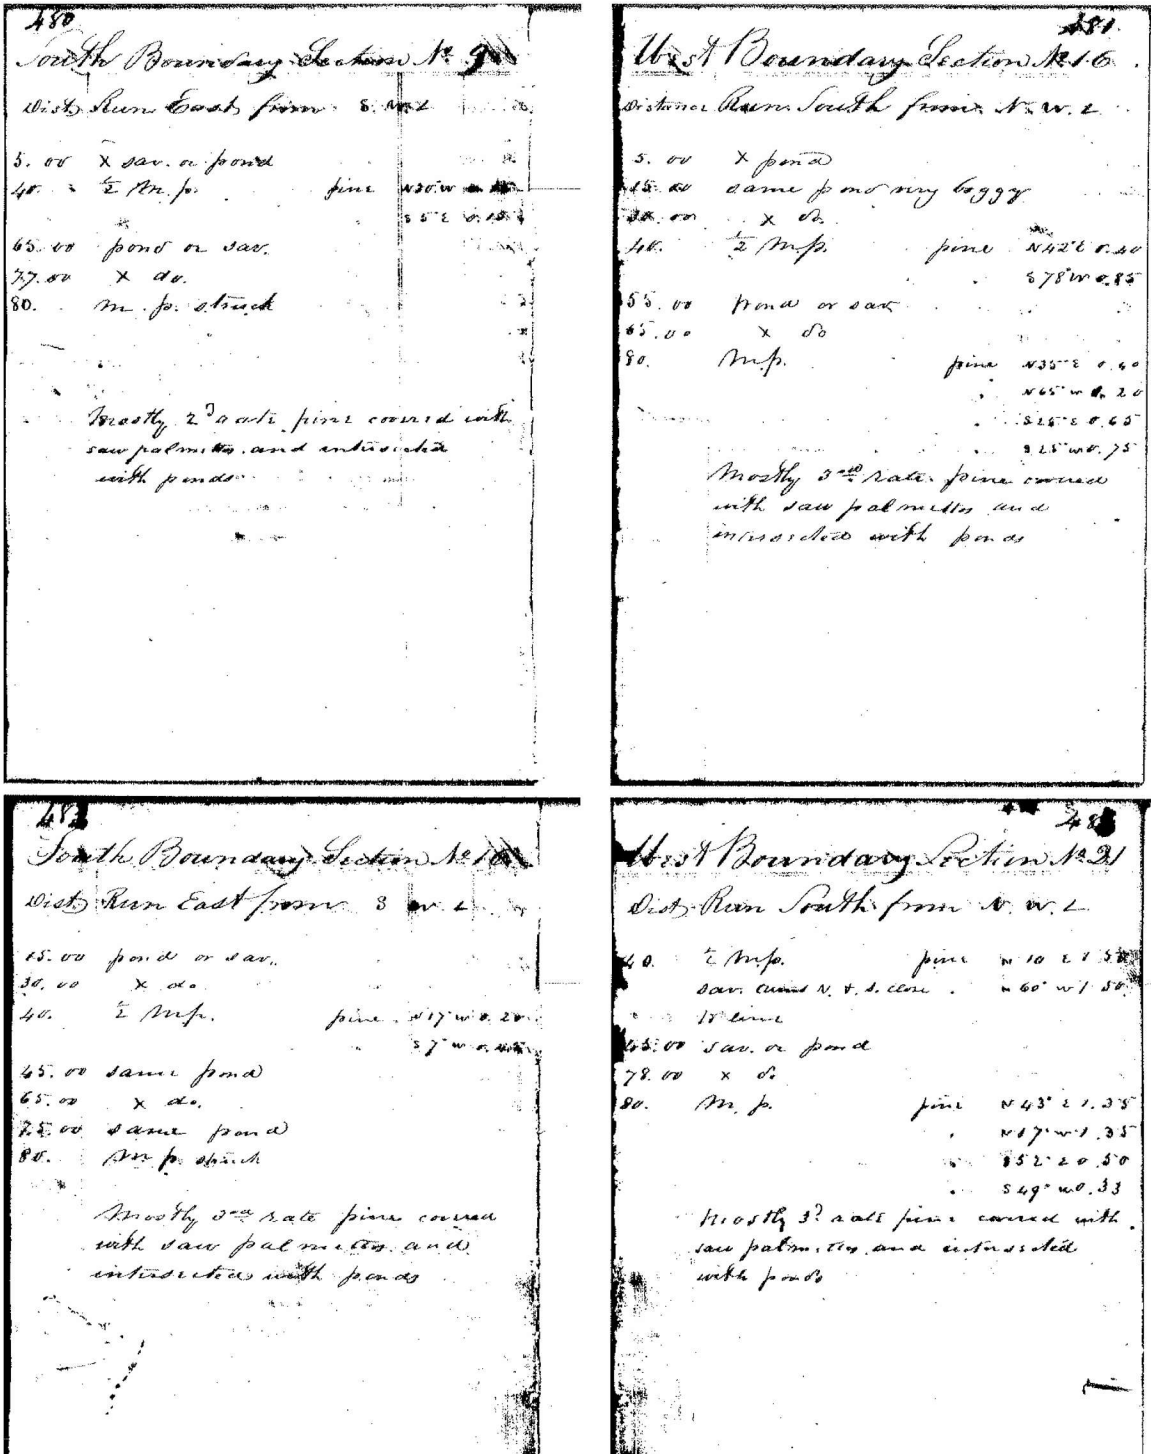 480
South Boundary Section No 9
Dist Run East from S W L
5.00 X sav. or pond
40. ½ M.p. pine N30 W
S 5 E 0.18
65.00 pond or sav.
77.00 X do.
80. M.p. struck
Mostly 2d rate pine covered with
saw palmetto and intersected
with ponds
481
West Boundary Section No 16
Distance Run South from N. W. L
5.00 X pond
15.00 same pond very boggy
30.00 X do
40. ½ M.p. pine N42 E 0.40
S 78 W 0.85
55.00 pond or sav
65.00 X do
80. M.p. pine N35 E 0.40
N65 W 0.20
S25 E 0.65
S 25 W 0.75
Mostly 3rd rate pine covered
with saw palmetto and
intersected with ponds
482
South Boundary Section No 16
Dist Run East from S W L
15.00 pond or sav.
30.00 X do
40. ½ M.p. pine N17 W 0.20
S 7 W 0.45
45.00 same pond
65.00 X do.
75.00 same pond
80. M p struck
Mostly 3rd rate pine covered
with saw palmettos and
intersected with ponds
483
West Boundary Section No 21
Dist Run South from N. W. L
40. ½ M.p. pine N 10 E 1.50
sav. N. & S. close N 60 W 1.50
to line
45.00 sav. or pond
78.00 X do
80. M. p. pine N 43° E 1.35
N 17 W 1.35
S 52 E 0.50
S 49° W 0.33
Mostly 3d rate pine covered with
saw palmettos and intersected
with ponds